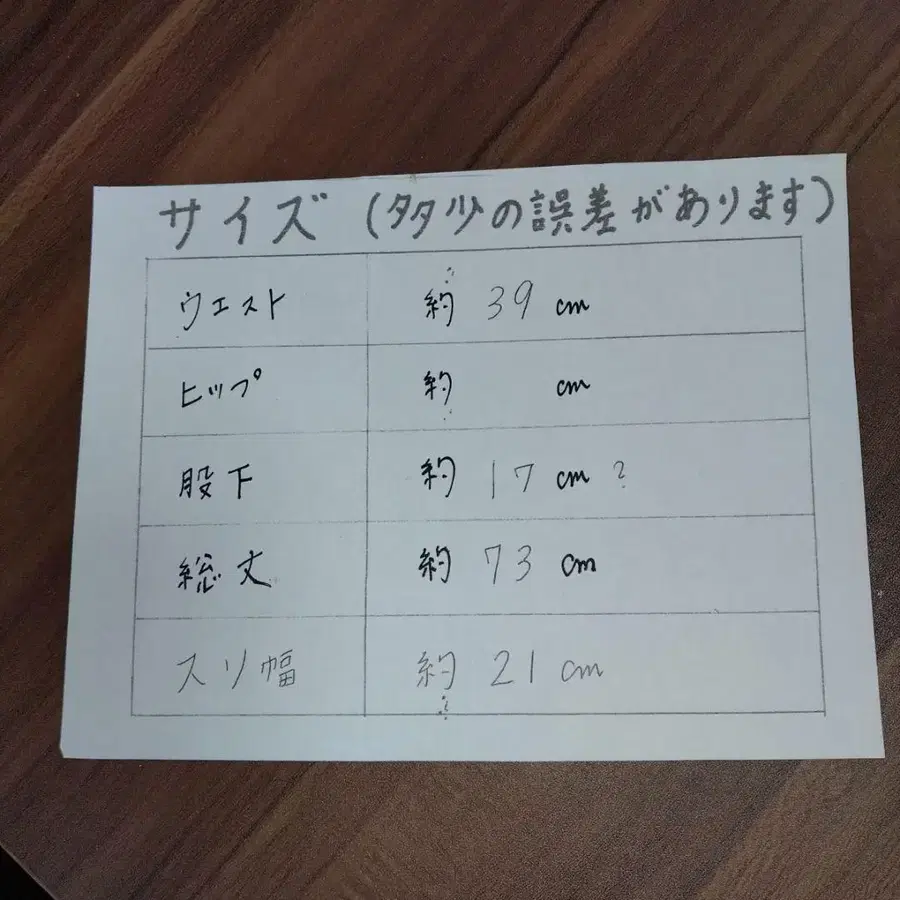 サイズ (多少の誤差があります)
ウエスト 約 39 cm
ヒップ 約 cm
股下 約 17 cm ?
総丈 約 73 cm
スソ幅 約 21 cm